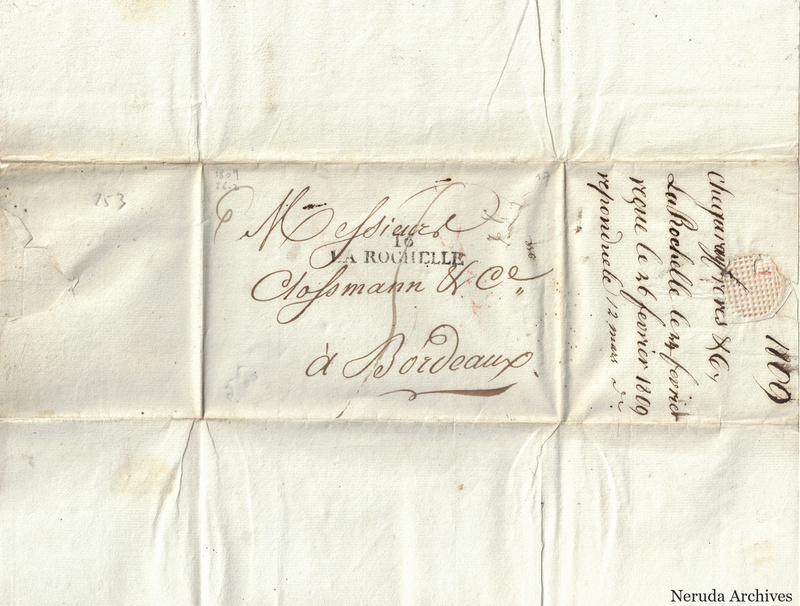 153
1809
Messieurs
16
LA ROCHELLE
Clossmann & Ce
à Bordeaux.
1809
Chegaray freres & Co,
La Rochelle le 24 fevrier
reçue le 26 fevrier 1809
repondue le 12 mars do
Neruda Archives